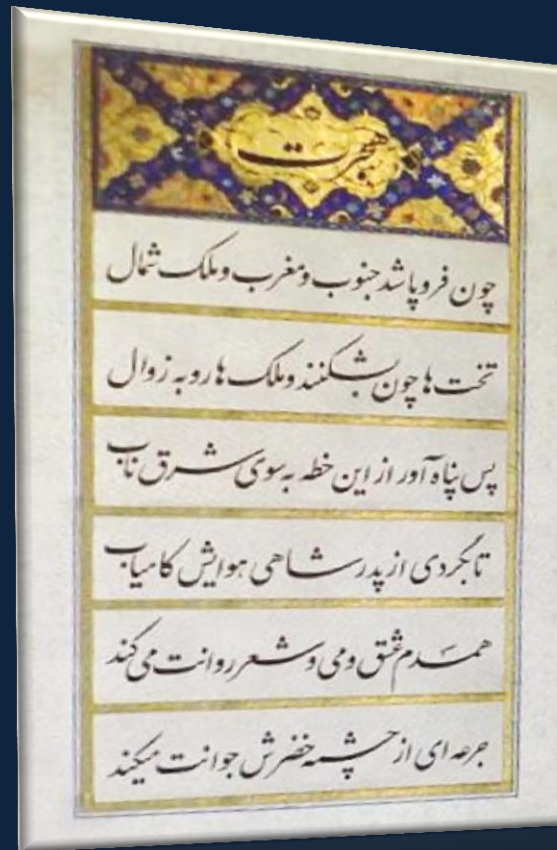 هجرت
چون فروپاشد جنوب و مغرب و ملک شمال
تخت ها چون بشکنند و ملک ها رو به زوال
پس پناه آور از این خطه به سوی شرق ناب
تا بگردی از پدر شاهی هوایش کامیاب
همدم عشق و می و شعر روانت می کند
جرعه ای از چشمه خضرش جوانت میکند